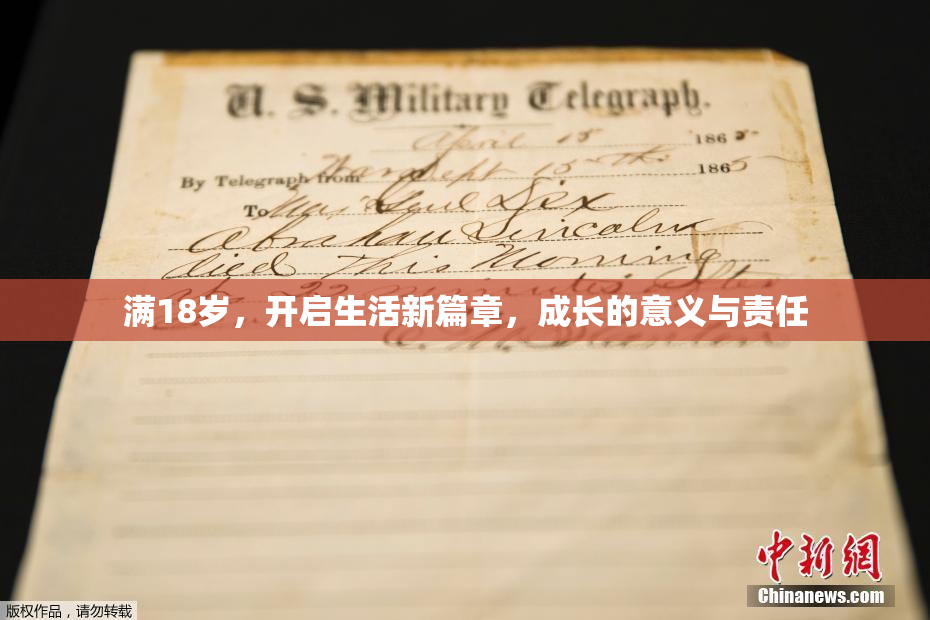 U. S. Military Telegraph.
April 15 1865
By Telegraph from War Dept 15th 1865
To Maj Genl Dix
Abraham Lincoln
died This Morning
at 22 minutes after
满18岁，开启生活新篇章，成长的意义与责任
E. M. Stanton
中新网
Chinanews.com
版权作品，请勿转载